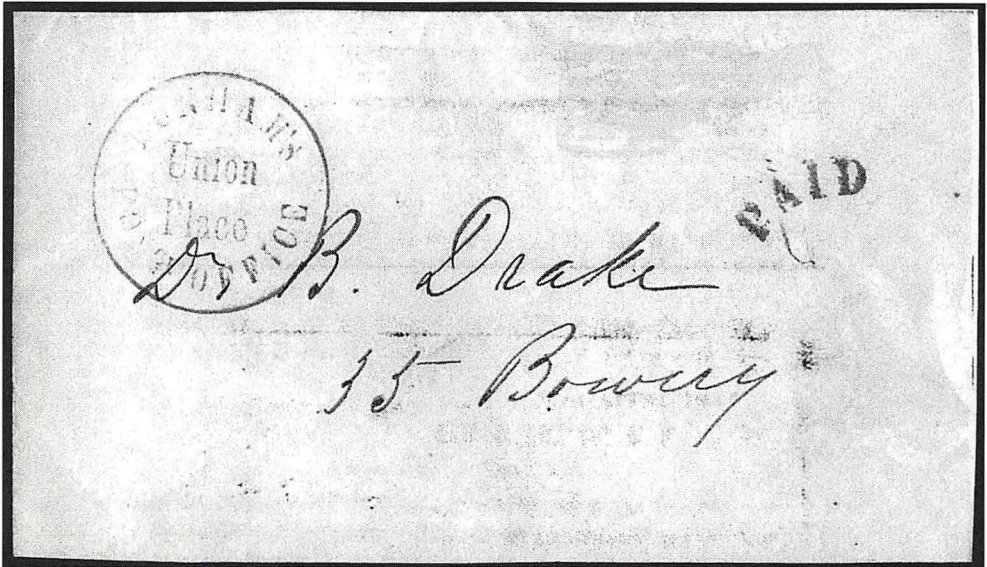 DUNHAM'S
Union
Place
OFFICE
PAID
Dr, B. Drake
35 Bowery